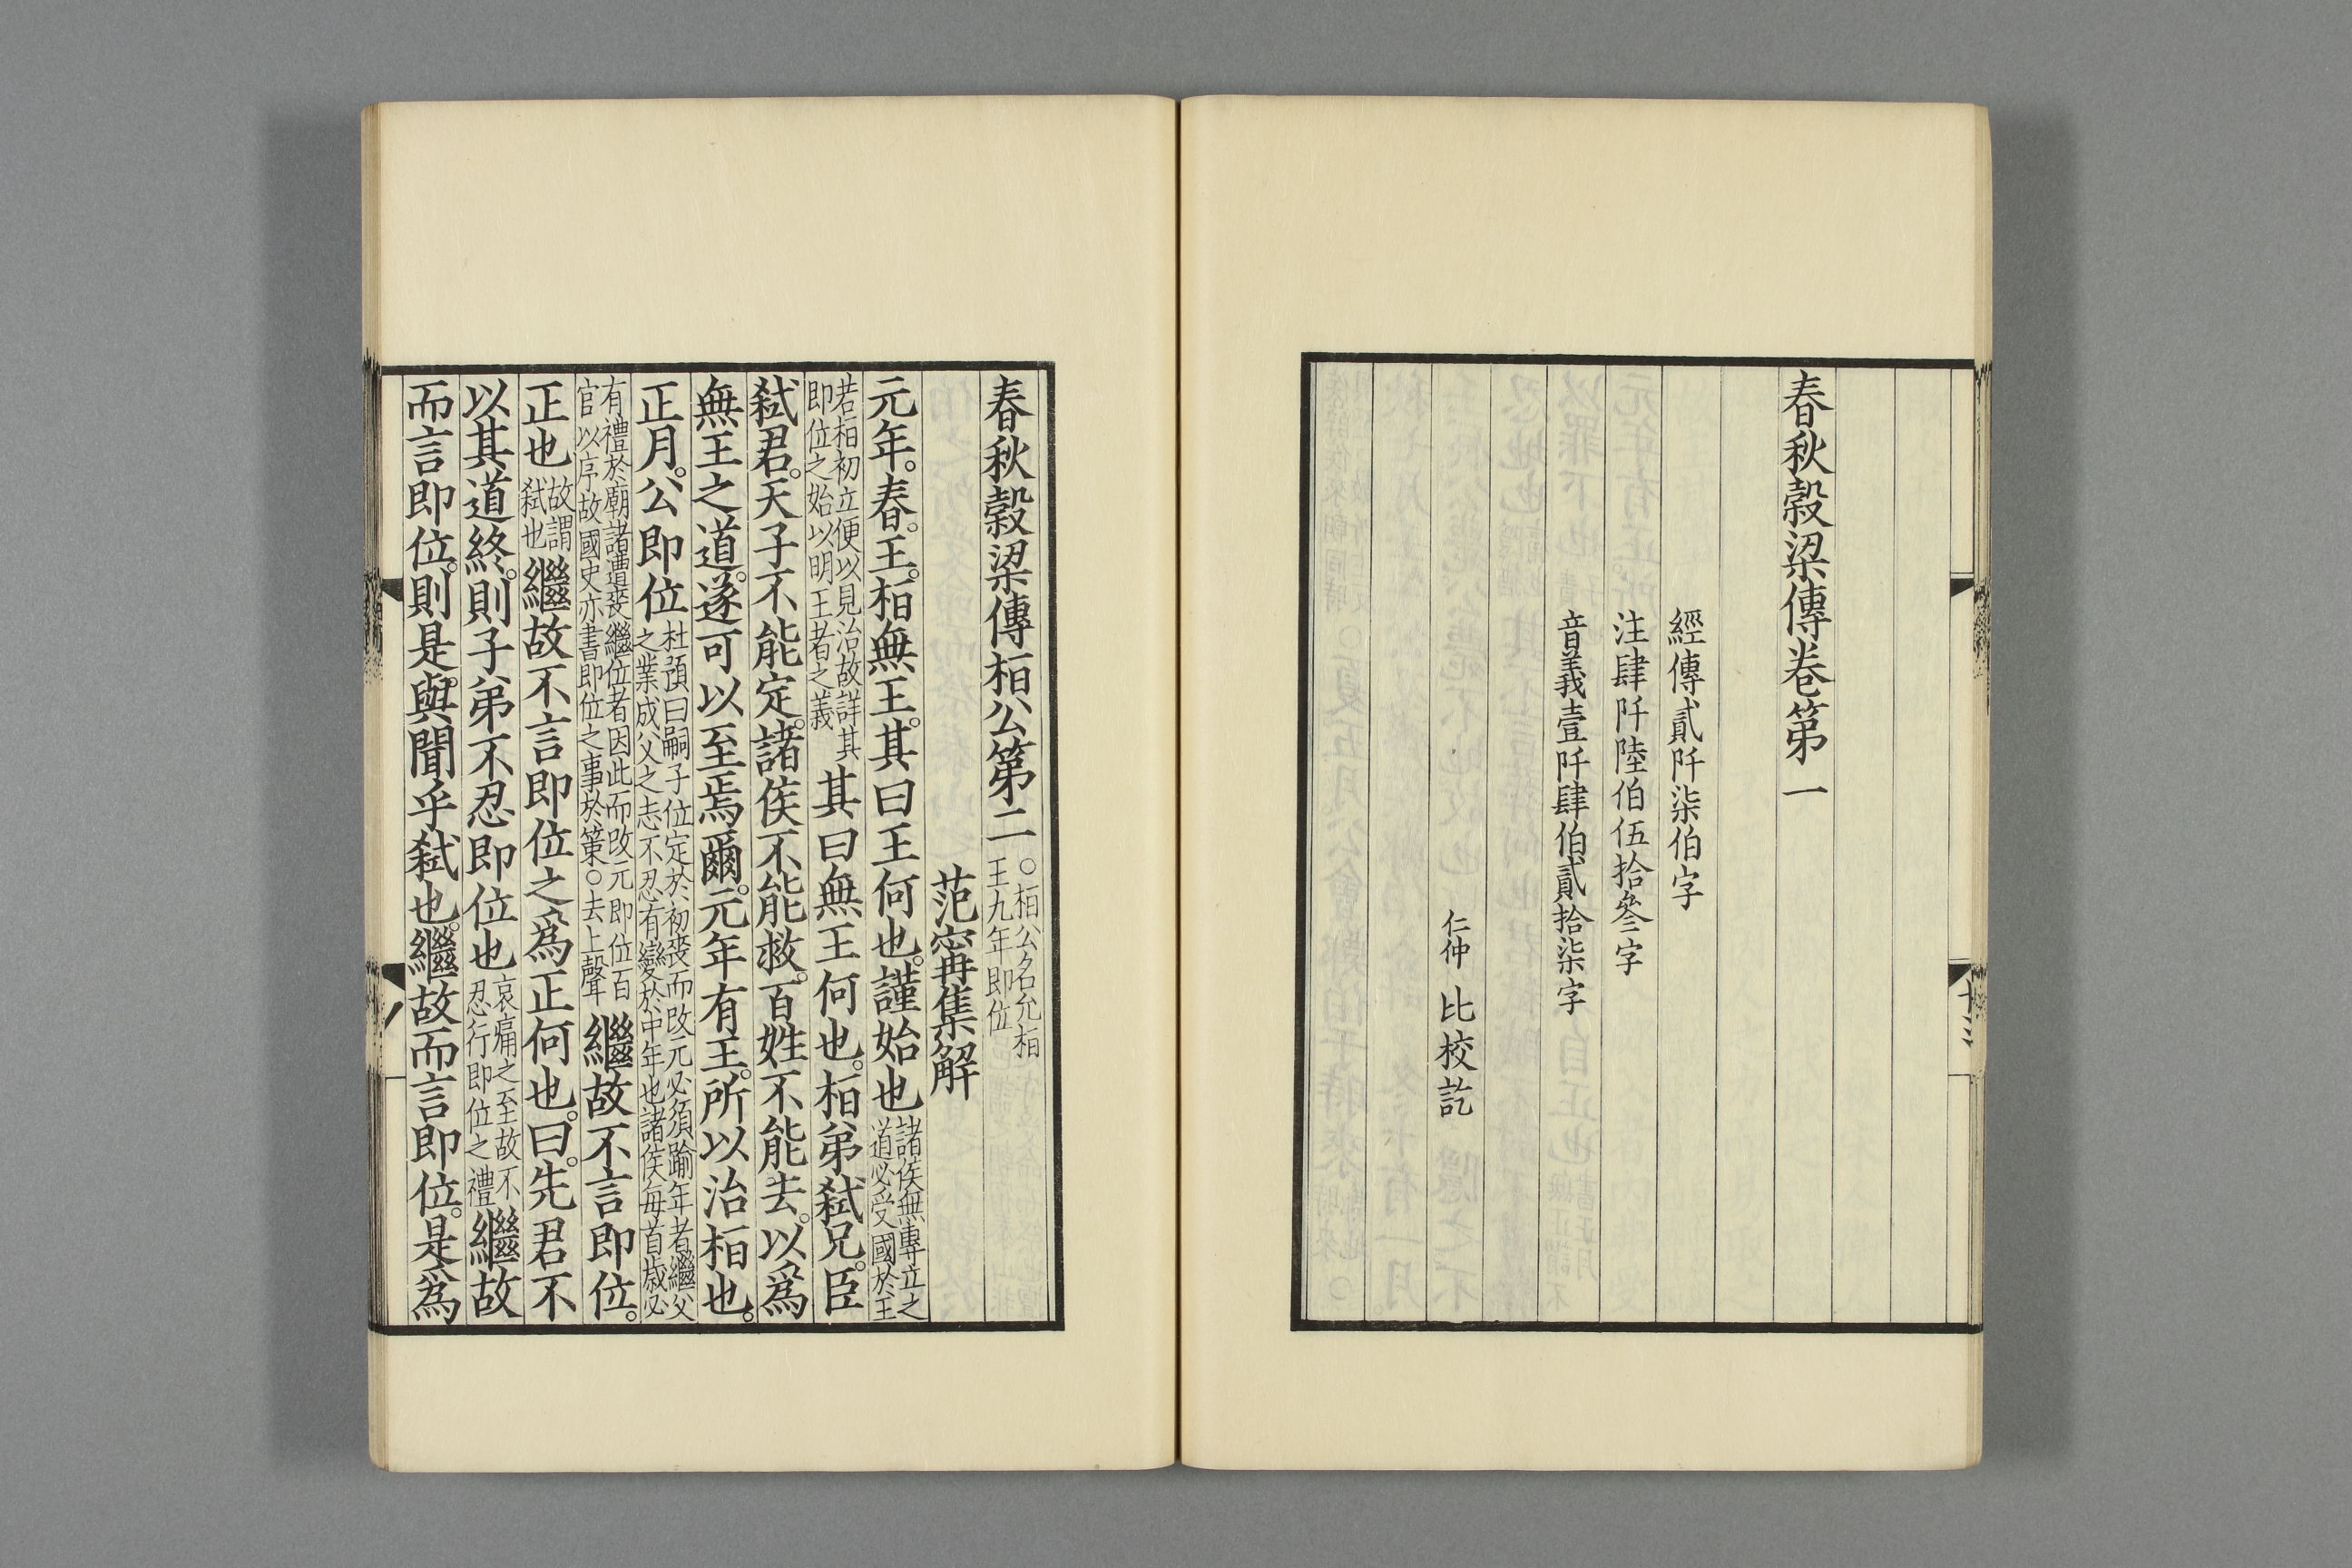 春秋穀梁傳卷第一
經傳貳阡柒伯字
注肆阡陸伯伍拾叄字
音義壹阡肆伯貳拾柒字
仁仲 比校訖
十三
春秋穀梁傳桓公第二 ○桓公名允桓王九年即位
范甯集解
元年。春。王。桓無王。其曰王何也。謹始也 諸侯無專立之道必受國於王
若桓初立便以見治故詳其即位之始以明王者之義 其曰無王何也。桓弟弒兄。臣
弒君。天子不能定。諸侯不能救。百姓不能去。以爲
無王之道。遂可以至焉爾。元年有王。所以治桓也。
正月。公即位 杜預曰嗣子位定於初喪而改元必須踰年者繼父之業成父之志不忍有變於中年也諸侯每首歲必
有禮於廟諸遭喪繼位者因此而改元即位百官以序故國史亦書即位之事於策○去上聲 繼故不言即位。
正也 故謂弒也 繼故不言即位之爲正何也。曰。先君不
以其道終。則子弟不忍即位也 哀痛之至故不忍行即位之禮 繼故
而言即位。則是與聞乎弒也。繼故而言即位。是爲